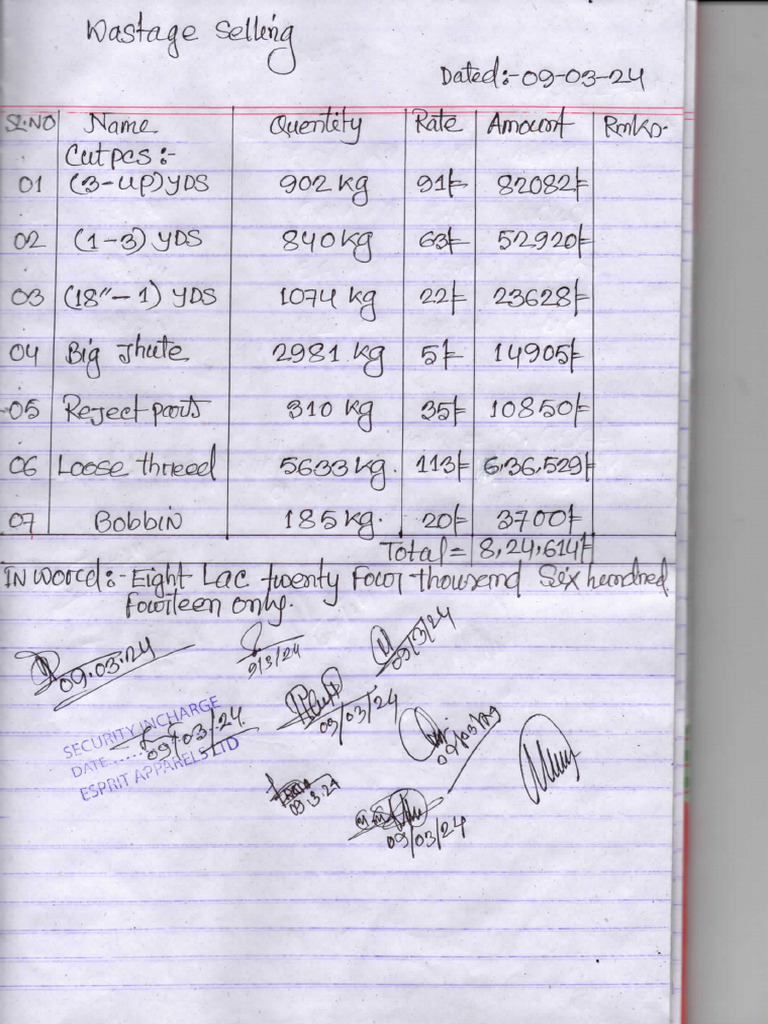 Wastage Selling
Dated:-09-03-24
Sl.NO Name Quentity Rate Amount Rmks.
Cutpcs:-
01 (3-up) YDS 902 kg 91/= 82082/=
02 (1-3) YDS 840 kg 63/= 52920/=
03 (18"-1) YDS 1074 kg 22/= 23628/=
04 Big Jhute 2981 kg 5/= 14905/=
05 Reject parts 310 kg 35/= 10850/=
06 Loose threed 5633 kg. 113/= 6,36,529/=
07 Bobbin 185 kg. 20/= 3700/=
Total = 8,24,614/=
IN word:- Eight Lac twenty Four thousand Six hundred
fourteen only.
09.03.24
9/3/24
09/3/24
09/03/24
SECURITY INCHARGE
09/03/24.
DATE......
ESPRIT APPARELS LTD
09/03/24
09.3.24
09/03/24